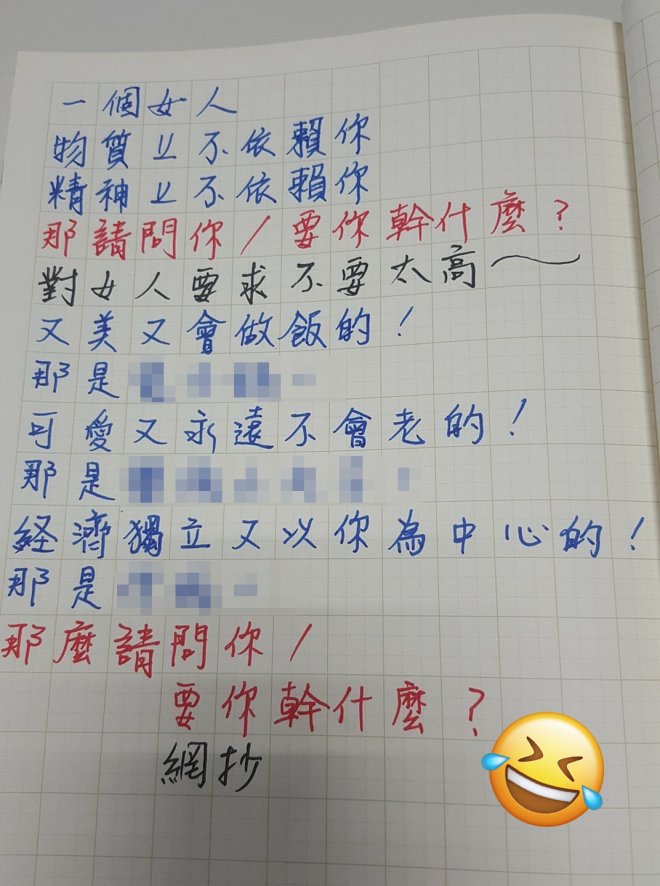 一個女人
物質上不依賴你
精神上不依賴你
那請問你/要你幹什麼?
對女人要求不要太高～
又美又會做飯的!
那是
可愛又永遠不會老的!
那是
経濟獨立又以你為中心的!
那是
那麼請問你/
要你幹什麼?
網抄